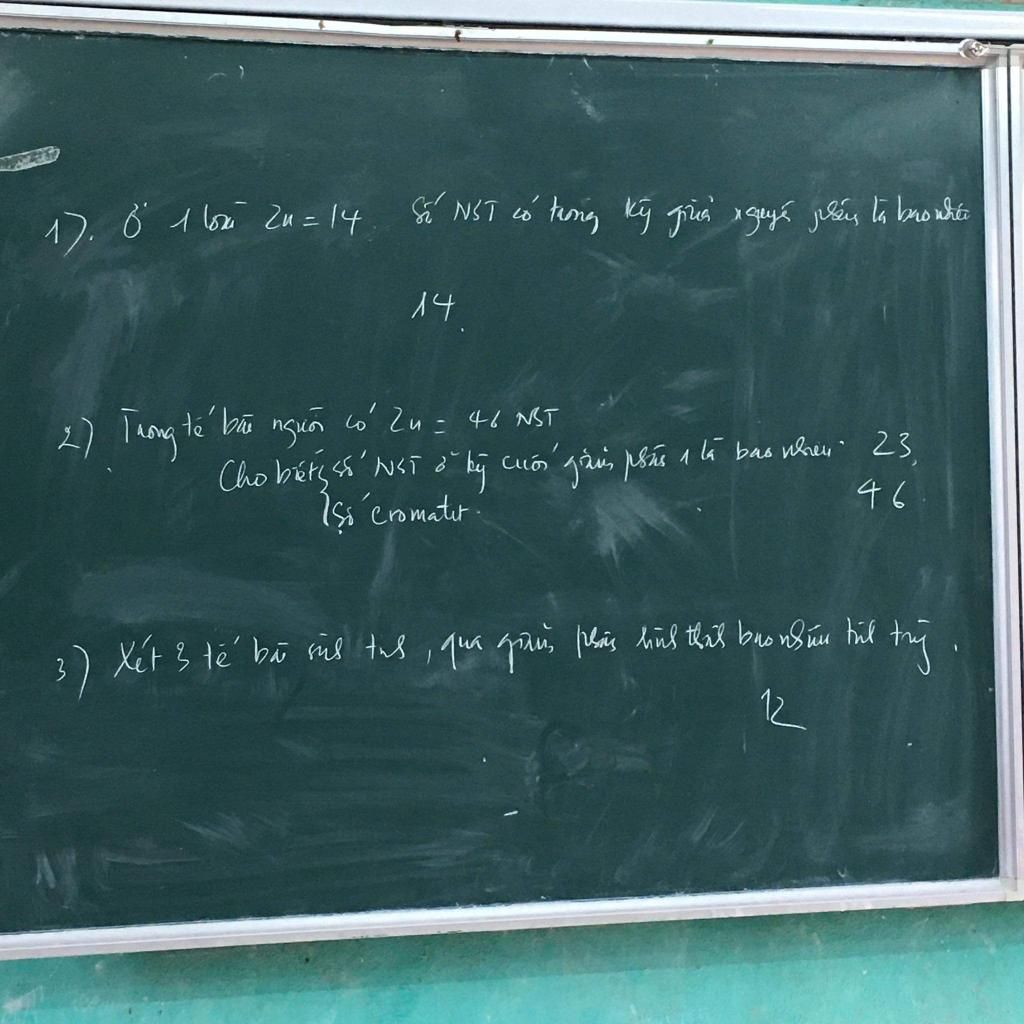 1). Ở 1 loài 2n = 14 Số NST có trong kỳ giữa nguyên phân là bao nhiêu
14.
2) Trong tế bào người có 2n = 46 NST
Cho biết { số NST ở kỳ cuối giảm phân 1 là bao nhiêu 23,
Số cromatit 46
3) Xét 3 tế bào sinh tinh, qua giảm phân hình thành bao nhiêu tinh trùng.
12